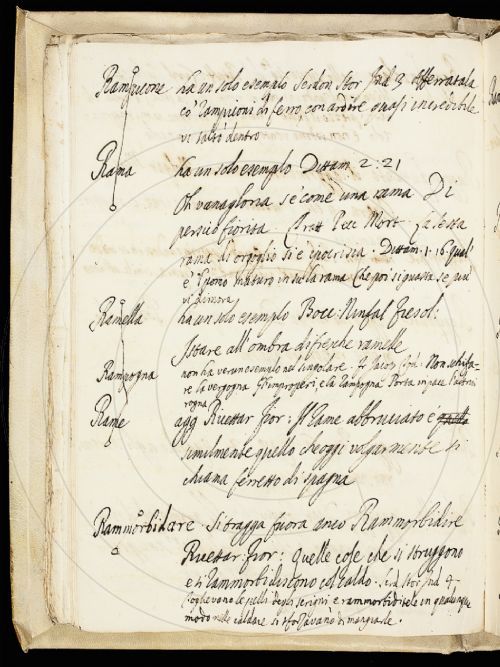 Rampicone ha un solo esempio Serdon. Stor. Ind. 3 Afferratala
co' rampiconi di ferro, con ardire quasi incredibile
vi saltò dentro
Rama ha un solo esempio Dittam. 2. 21
Oh vanagloria s'è come una rama Di
persico fiorita. Tratt. Pecc. Mort. La sesta
rama di orgoglio si è ipocrisia. Dittam. 1. 16. qual
è 'l pomo maturo in su la rama Che poi si guasta se più
vi dimora
Ramella ha un solo esempio Bocc. Ninfal. Fiesol:
Istare all'ombra di fresche ramelle
Rampogna non ha verun esempio nel singolare. Fr. Jacop. Non schifa-
re la vergogna Gl'improperi, e la rampogna Porta in pace
rogna
Rame agg. Ricettar. Fior: Il rame abbruciato è
similmente quello che oggi volgarmente si
chiama ferretto di spagna
Rammorbidare Si tragga fuora anco Rammorbidire
Ricettar. Fior: quelle cose che si struggono
e si rammorbidiscono col caldo. Serd. Stor. Ind. 4.
Toglievano le pelli degli scrigni e rammorbiditele in qualunque
modo nelle caldaie si sforzavano di mangiarle.